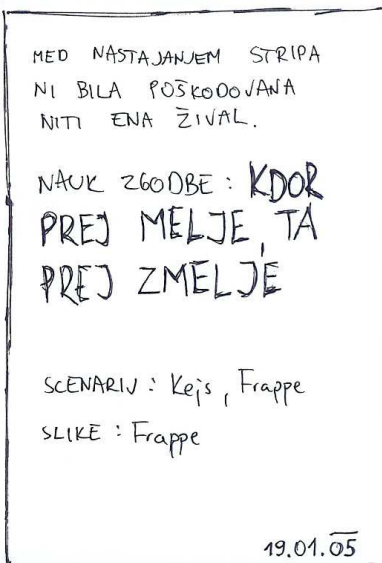 MED NASTAJANJEM STRIPA
NI BILA POŠKODOVANA
NITI ENA ŽIVAL.
NAUK ZGODBE : KDOR
PREJ MELJE, TA
PREJ ZMELJE
SCENARIJ : Kejs, Frappe
SLIKE : Frappe
19.01.05